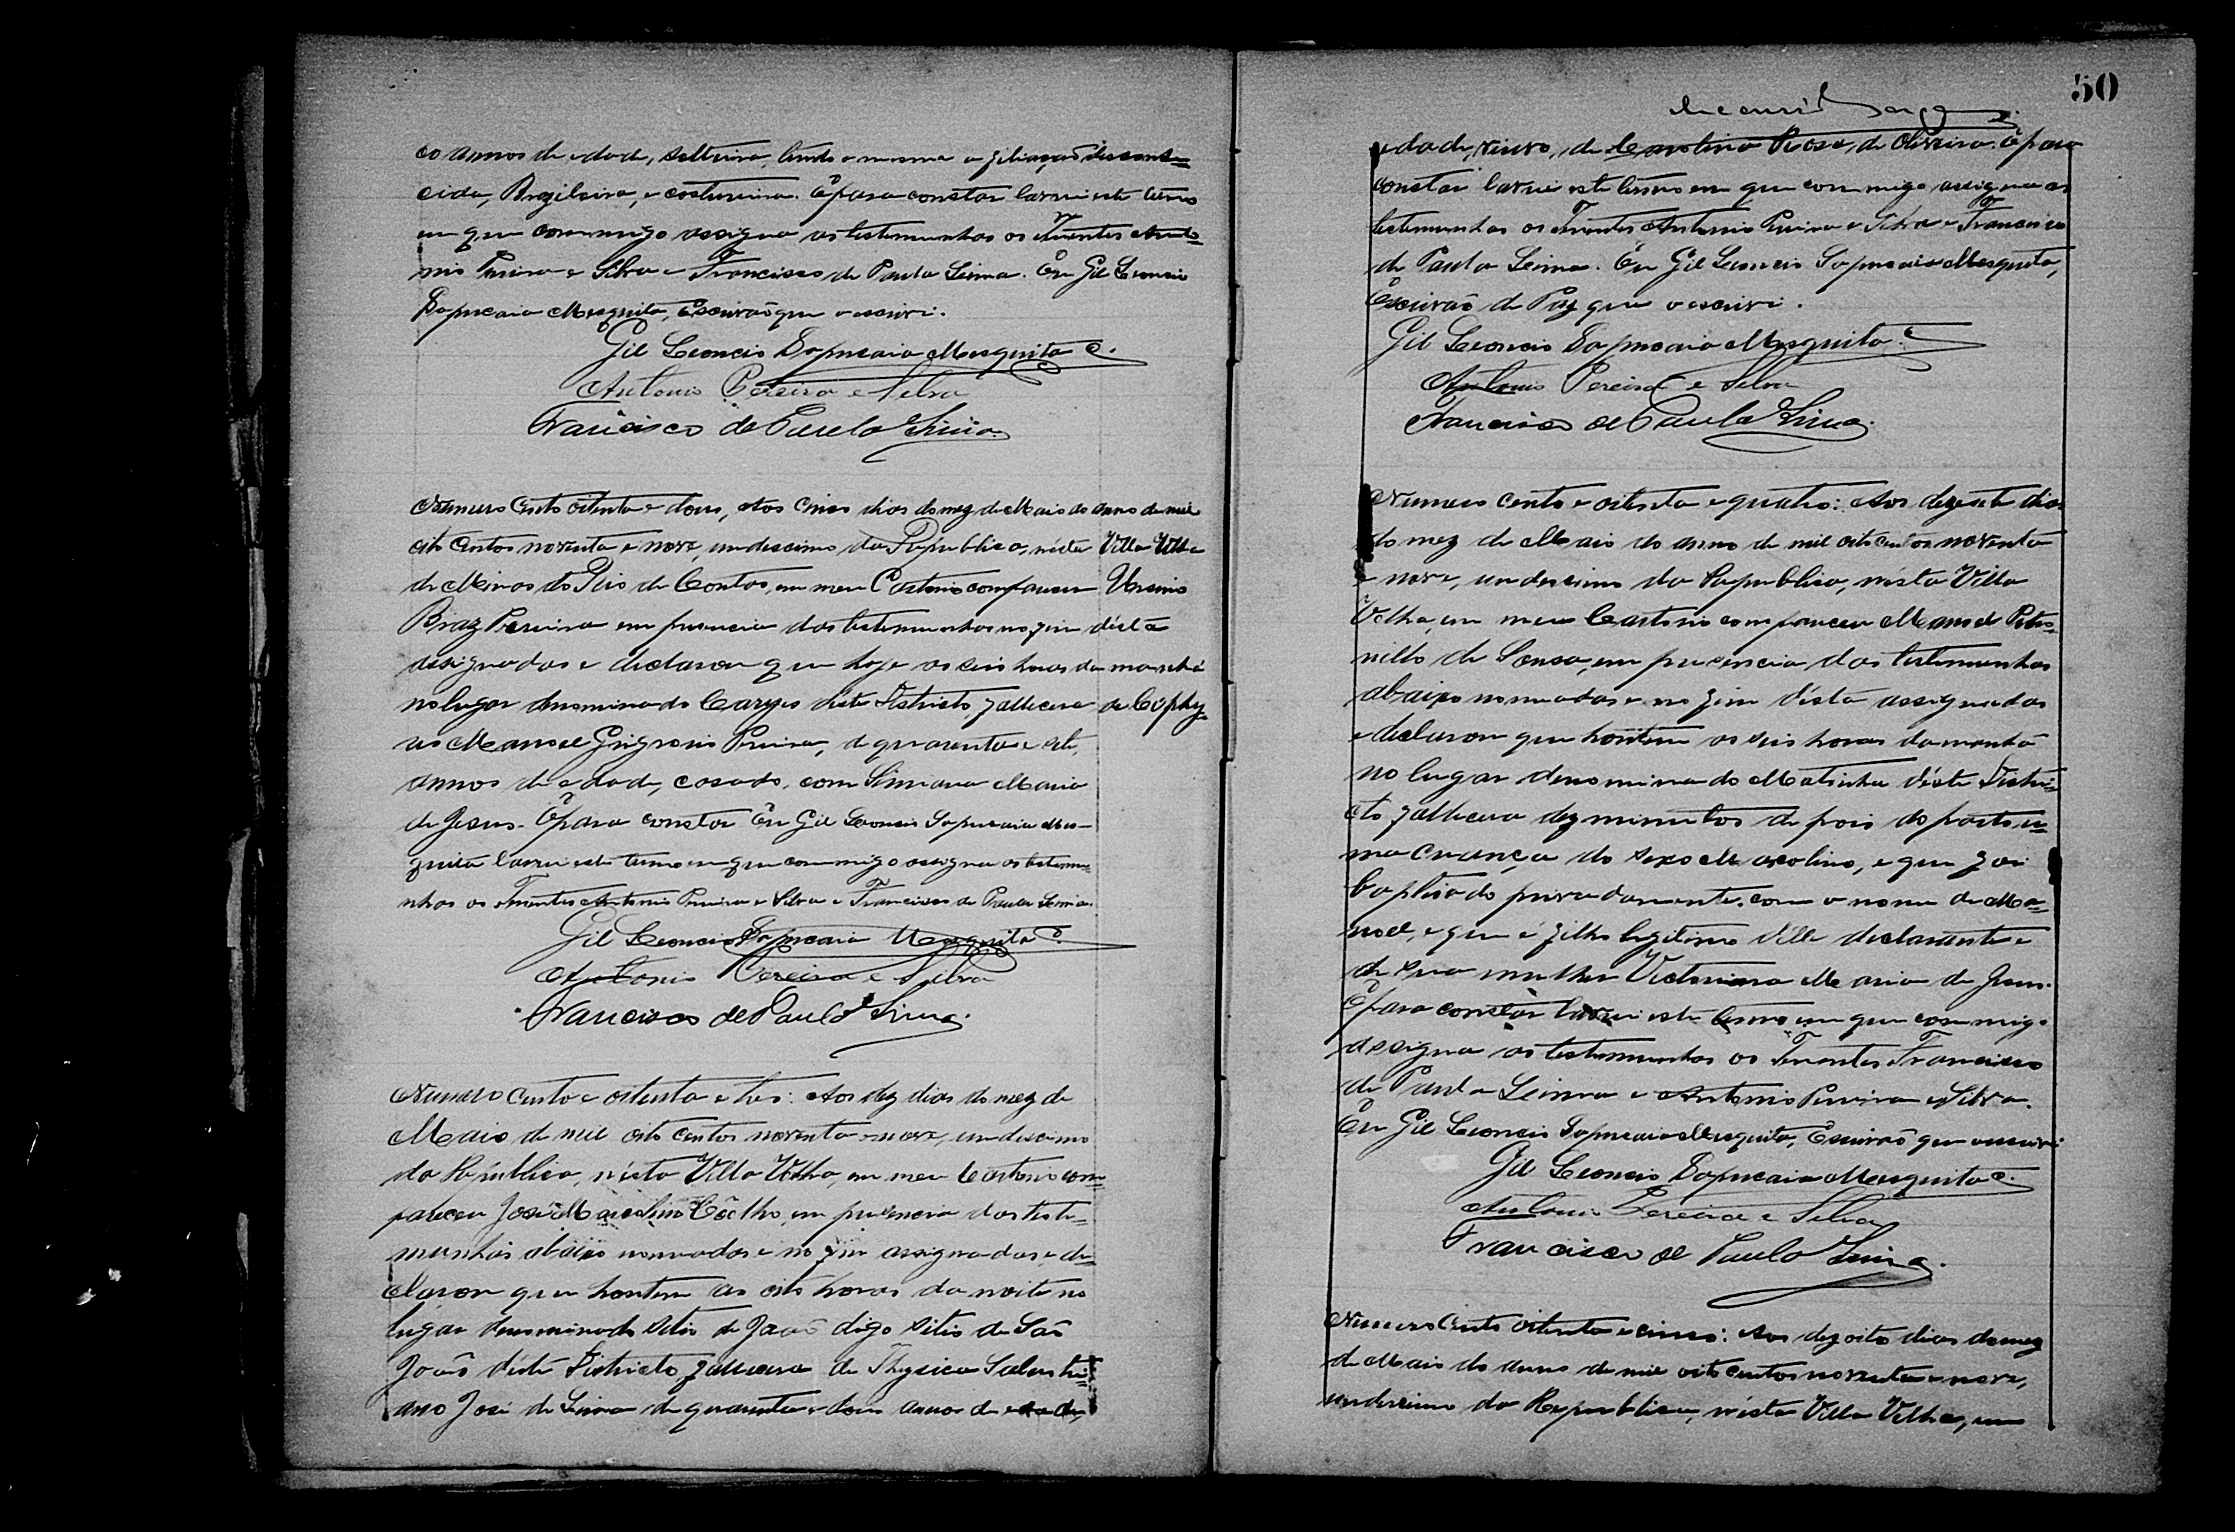 co annos de edade, solteira, tendo a mesma a filiação desconhe=
cida, Brazileira, e costureira. E para constar lavrei este termo
em que commigo assigna as testemunhas os Tenentes Anto=
nio Pereira e Silva e Francisco de Paula Lima. Eu Gil Leoncio
Sapucaia Mesquita, Escrivão que o escrevi.
Gil Leoncio Sapucaia Mesquita
Antonio Pereira e Silva
Francisco de Paula Lima
Numero Cento oitenta e dous, Aos cinco dias do mez de Maio do anno de mil
oito centos noventa e nove, undessimo da Republica, nésta Villa Velha
de Minas do Rio de Contas, em meu Cartorio compareceu
Braz Pereira em presencia das testemunhas no fim désta
assignadas e declarou que hoje as seis horas da manhã
no lugar denominado déste Districto, fallecera
Manoel Pereira, de quarenta e
annos de edade, casado, com Maria
de Jesus. E para constar Eu Gil Leoncio Sapucaia Mes-
quita lavrei este termo em que commigo assigna as testemu=
nhas os Tenentes Antonio Pereira e Silva e Francisco de Paula Lima.
Gil Leoncio Sapucaia Mesquita
Antonio Pereira e Silva
Francisco de Paula Lima
Numero Cento e oitenta e tres: Aos dez dias do mez de
Maio de mil oito centos noventa e nove, undessimo
da Republica, nésta Villa Velha, em meu Cartorio com=
pareceu José Marcolino Coêlho, em presencia das teste=
munhas abaixo nomeadas e no fim assignadas, e de=
clarou que hontem as oito horas da noite no
lugar denominado sitio de João digo sitio de São
João déste Districto, fallecera de Thysica Salusti=
ano José de Lima de quarenta e dous annos de edade,
50
edade, viuvo, de Carolina Rosa, de Oliveira. E para
constar lavrei este termo em que commigo assigna as
testemunhas os Tenentes Antonio Pereira e Silva e Francisco
de Paula Lima. Eu Gil Leoncio Sapucaia Mesquita,
Escrivão de Paz que o escrevi.
Gil Leoncio Sapucaia Mesquita
Antonio Pereira e Silva
Francisco de Paula Lima
Numero cento e oitenta e quatro: Aos dezesete dias
do mez de Maio do anno de mil oito centos noventa
e nove, undessimo da Republica, nésta Villa
Velha, em meu Cartorio compareceu Manoel Petro=
nillo de Souza, em presencia das testemunhas
abaixo nomeadas e no fim désta assignadas
e declarou que hontem as seis horas da manhã
no lugar denominado Matinha déste Distri=
cto fallecera dez minutos depois do parto, u=
ma criança do sexo Masculino, e que foi
baptisado privadamente com o nome de Ma=
noel, e que é filho legitimo délle declarante e
de sua mulher Victoriana Maria de Jesus.
E para constar lavrei este termo em que commigo
assigna as testemunhas os Tenentes Francisco
de Paula Lima e Antonio Pereira e Silva.
Eu Gil Leoncio Sapucaia Mesquita, Escrivão que o escrevi
Gil Leoncio Sapucaia Mesquita
Antonio Pereira e Silva
Francisco de Paula Lima
Numero Cento oitenta e cinco: Aos dezoito dias do mez
de Maio do anno de mil oito centos noventa e nove,
undessimo da Republica, nésta Villa Velha, em